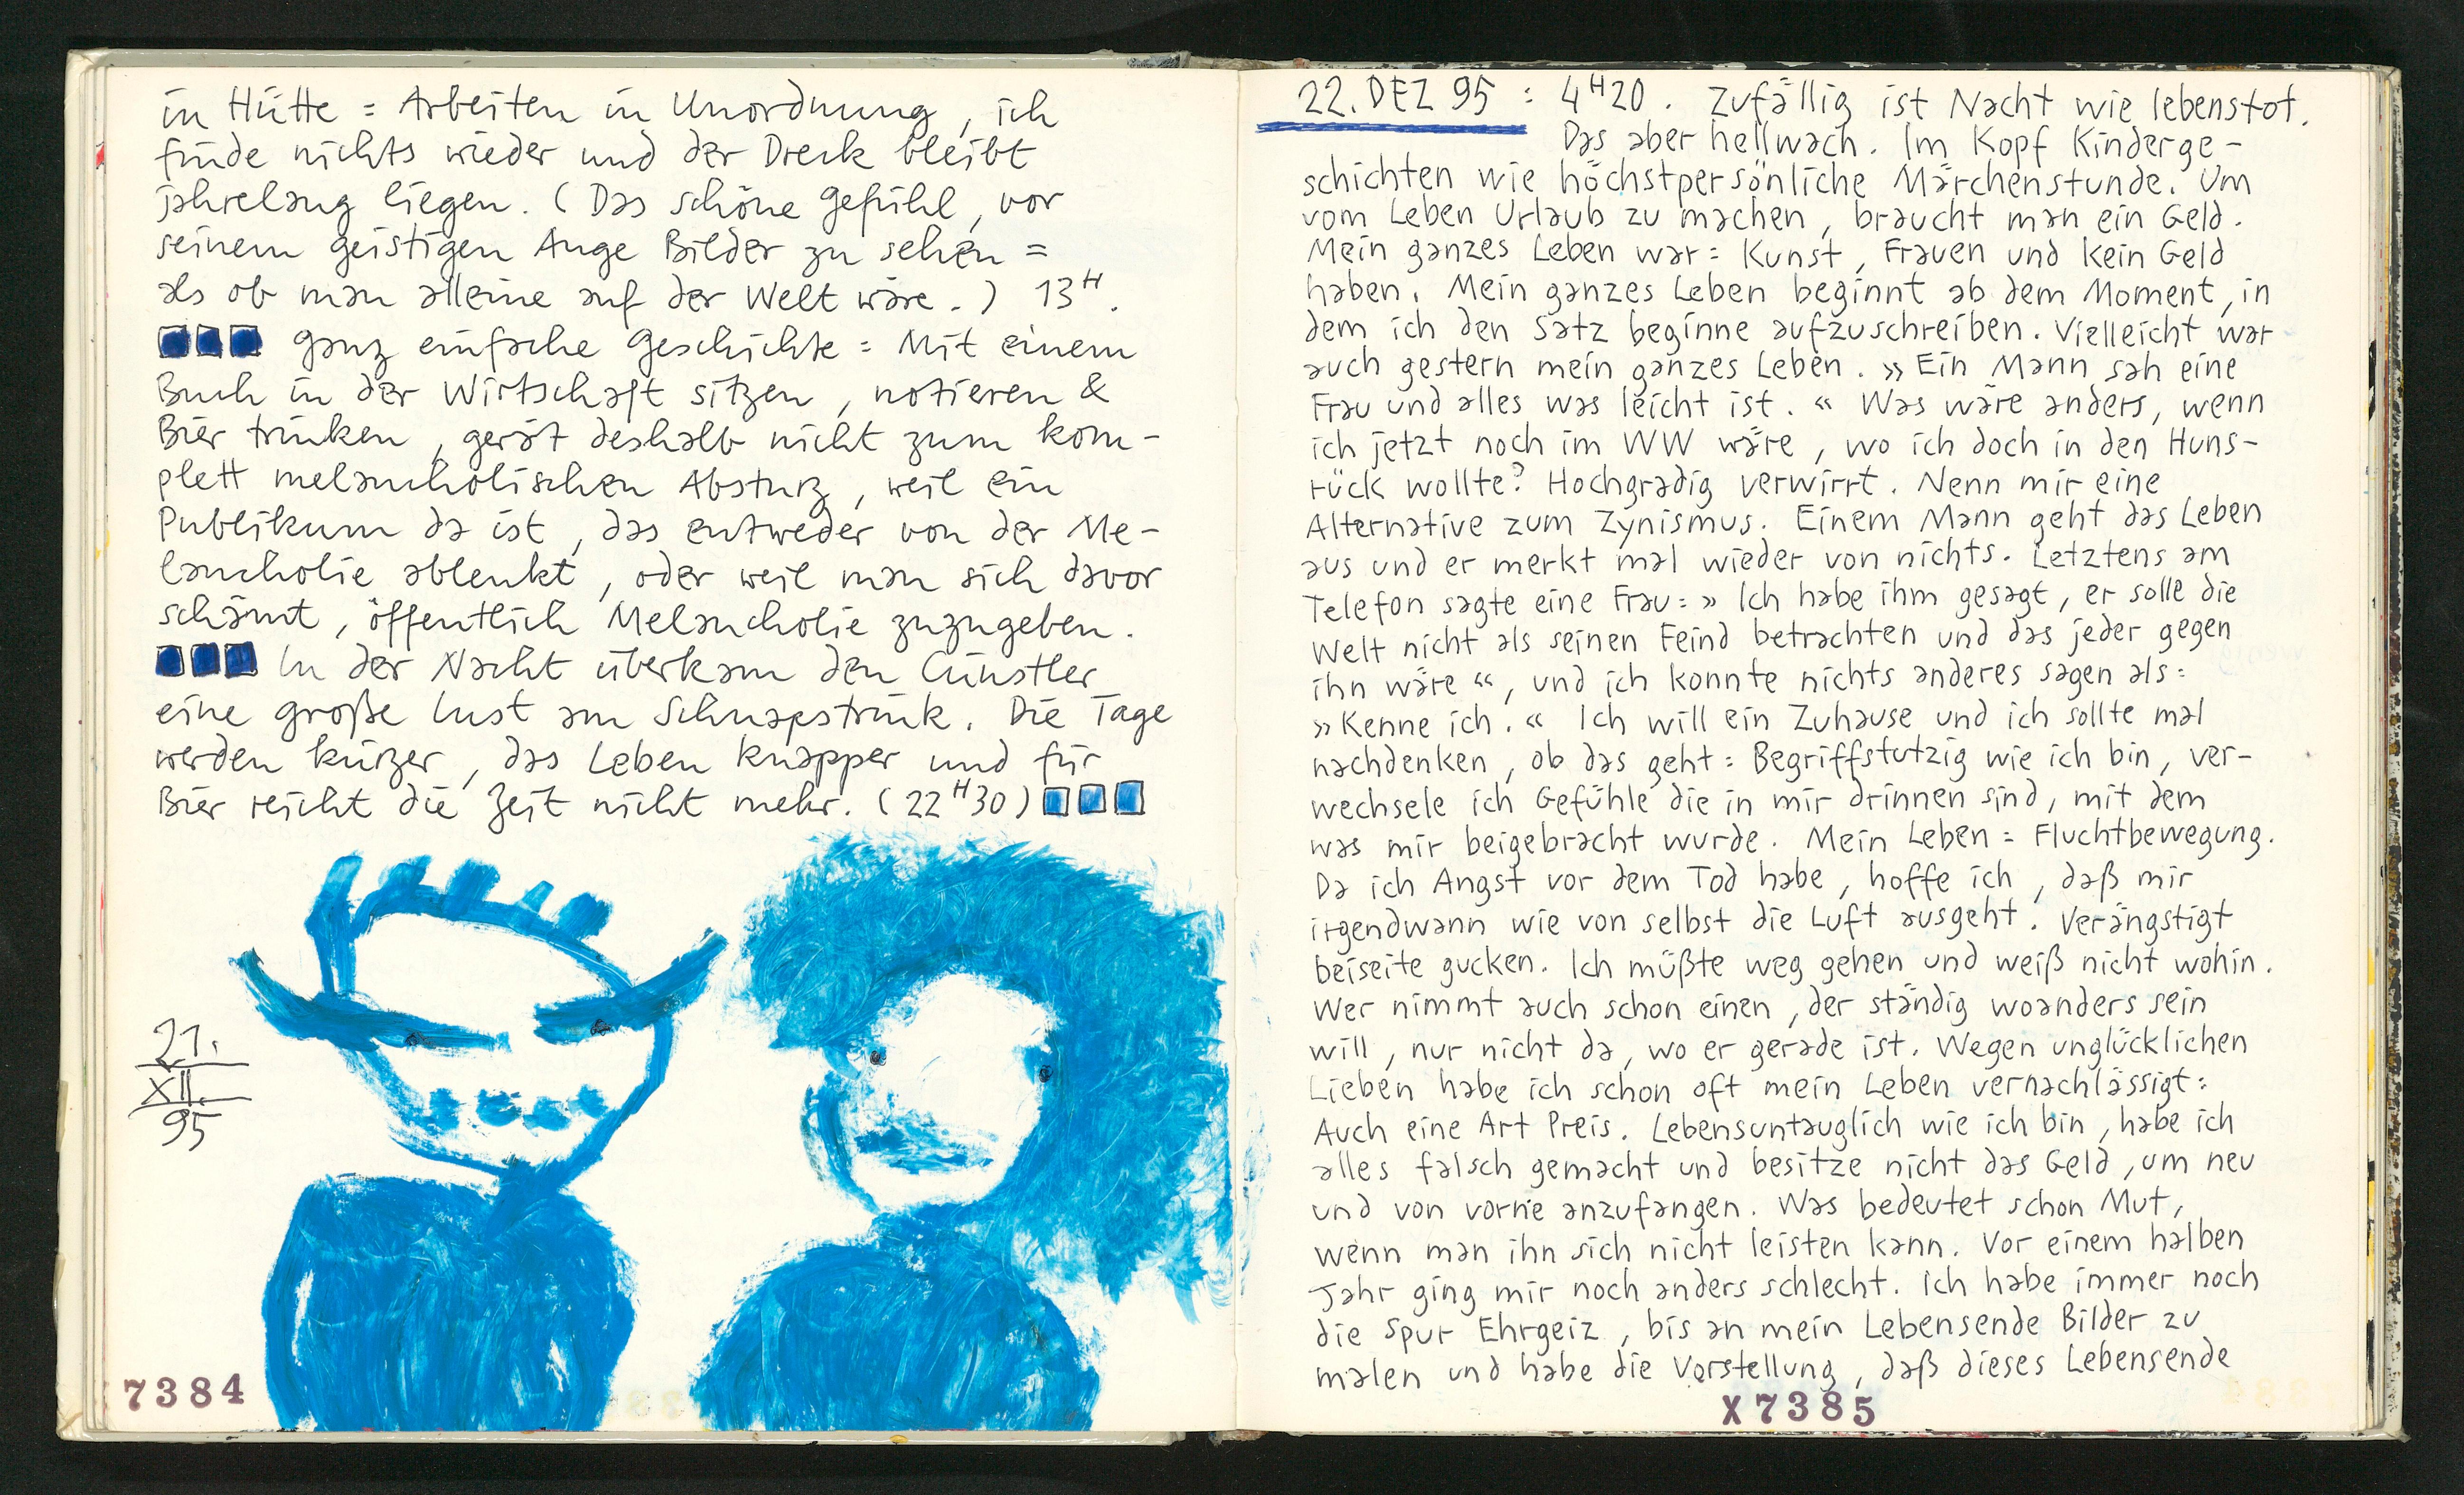 in Hütte = Arbeiten in Unordnung, ich
finde nichts wieder und der Dreck bleibt
jahrelang liegen. (Das schöne Gefühl, vor
seinem geistigen Auge Bilder zu sehen =
als ob man alleine auf der Welt wäre.) 13H.
Ganz einfache Geschichte = Mit einem
Buch in der Wirtschaft sitzen, notieren &
Bier trinken, gerät deshalb nicht zum kom-
plett melancholischen Absturz, weil ein
Publikum da ist, das entweder von der Me-
lancholie ablenkt, oder weil man sich davor
schämt, öffentlich Melancholie zuzugeben.
In der Nacht überkam den Cünstler
eine große Lust am Schnapstrink. Die Tage
werden kürzer, das Leben knapper und für
Bier reicht die Zeit nicht mehr. (22H30)
21.
XII.
95
7384
22. DEZ 95 : 4H20. Zufällig ist Nacht wie lebenstot.
Das aber hellwach. Im Kopf Kinderge-
schichten wie höchstpersönliche Märchenstunde. Um
vom Leben Urlaub zu machen, braucht man ein Geld.
Mein ganzes Leben war = Kunst, Frauen und kein Geld
haben. Mein ganzes Leben beginnt ab dem Moment, in
dem ich den Satz beginne aufzuschreiben. Vielleicht war
auch gestern mein ganzes Leben. »Ein Mann sah eine
Frau und alles was leicht ist.« Was wäre anders, wenn
ich jetzt noch im WW wäre, wo ich doch in den Huns-
rück wollte? Hochgradig verwirrt. Nenn mir eine
Alternative zum Zynismus. Einem Mann geht das Leben
aus und er merkt mal wieder von nichts. Letztens am
Telefon sagte eine Frau = »Ich habe ihm gesagt, er solle die
Welt nicht als seinen Feind betrachten und das jeder gegen
ihn wäre«, und ich konnte nichts anderes sagen als:
»Kenne ich.« Ich will ein Zuhause und ich sollte mal
nachdenken, ob das geht = Begriffstutzig wie ich bin, ver-
wechsele ich Gefühle die in mir drinnen sind, mit dem
was mir beigebracht wurde. Mein Leben = Fluchtbewegung.
Da ich Angst vor dem Tod habe, hoffe ich, daß mir
irgendwann wie von selbst die Luft ausgeht. Verängstigt
beiseite gucken. Ich müßte weg gehen und weiß nicht wohin.
Wer nimmt auch schon einen, der ständig woanders sein
will, nur nicht da, wo er gerade ist. Wegen unglücklichen
Lieben habe ich schon oft mein Leben vernachlässigt:
Auch eine Art Preis. Lebensuntauglich wie ich bin, habe ich
alles falsch gemacht und besitze nicht das Geld, um neu
und von vorne anzufangen. Was bedeutet schon Mut,
wenn man ihn sich nicht leisten kann. Vor einem halben
Jahr ging mir noch anders schlecht. Ich habe immer noch
die Spur Ehrgeiz, bis an mein Lebensende Bilder zu
malen und habe die Vorstellung, daß dieses Lebensende
X7385